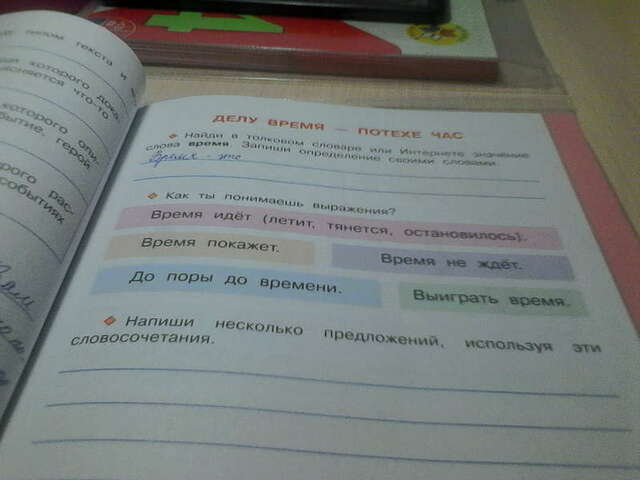 типом текста и
которого дока-
ясняется что-то
которого опи-
бытие, герой
рого рас-
событиях
ДЕЛУ ВРЕМЯ — ПОТЕХЕ ЧАС
Найди в толковом словаре или Интернете значение
слова время. Запиши определение своими словами.
Время - это
Как ты понимаешь выражения?
Время идёт (летит, тянется, остановилось).
Время покажет.
Время не ждёт.
До поры до времени.
Выиграть время.
Напиши несколько предложений, используя эти
словосочетания.